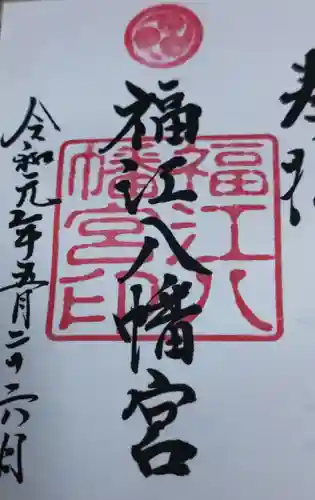 奉拝
福江八幡宮
福江八幡宮印
令和元年五月二十六日